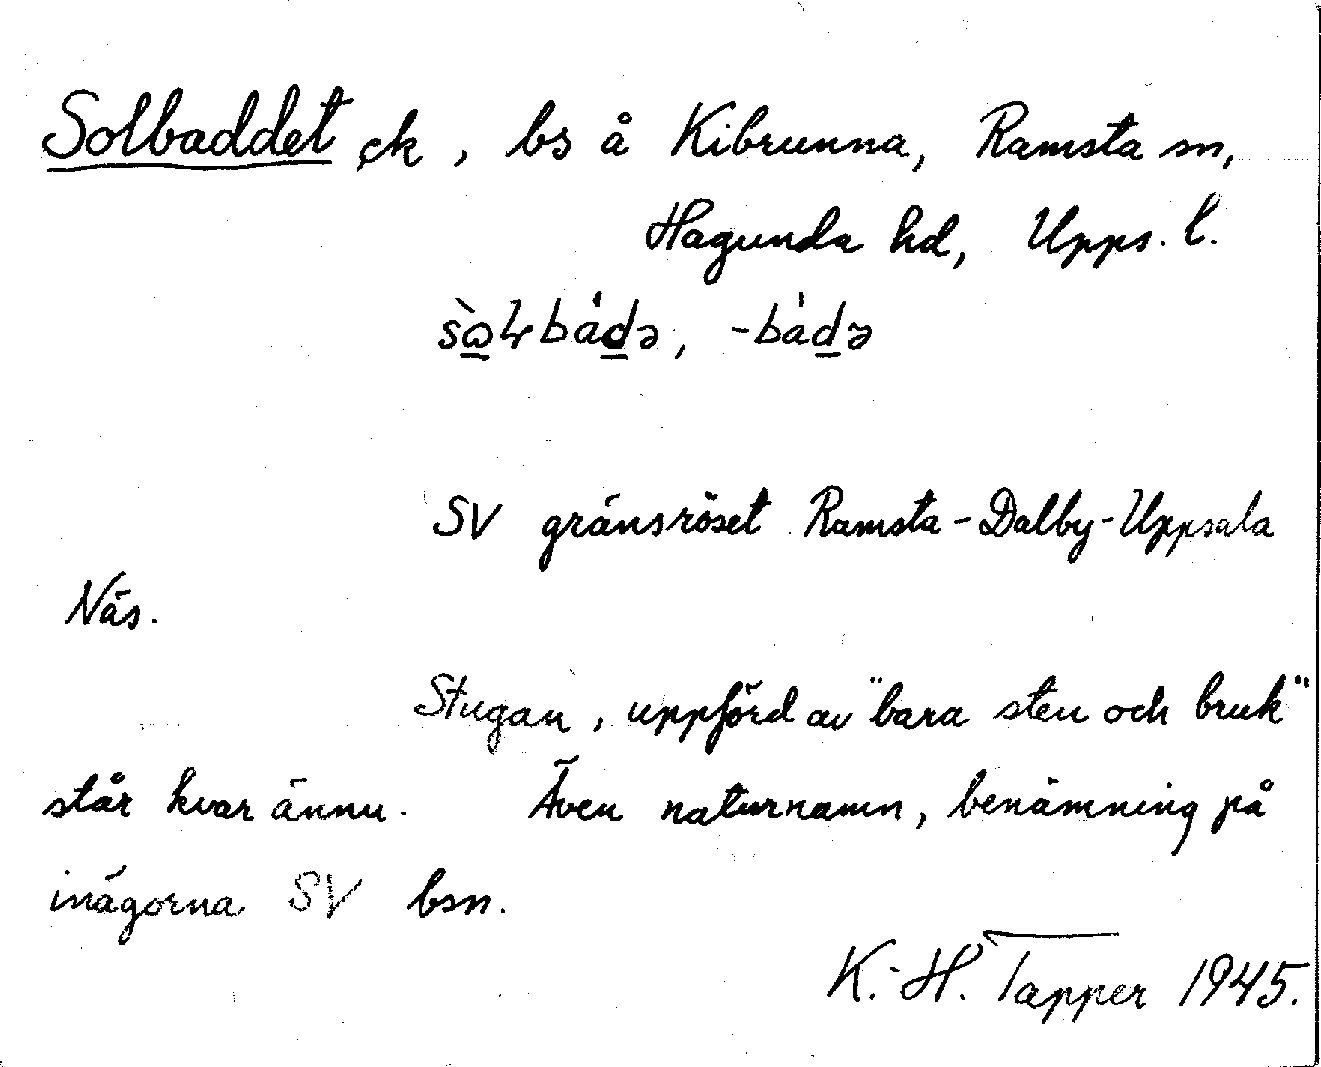 Solbaddet çk, bs å Kibrunna, Ramsta sn,
Hagunda hd, Upps. l.
SV gränsröset Ramsta-Dalby-Uppsala
Näs.
Stugan, uppförd av "bara sten och bruk"
står kvar ännu. Även naturnamn, benämning på
inägorna SV bsn.
K.-H. Tapper 1945.